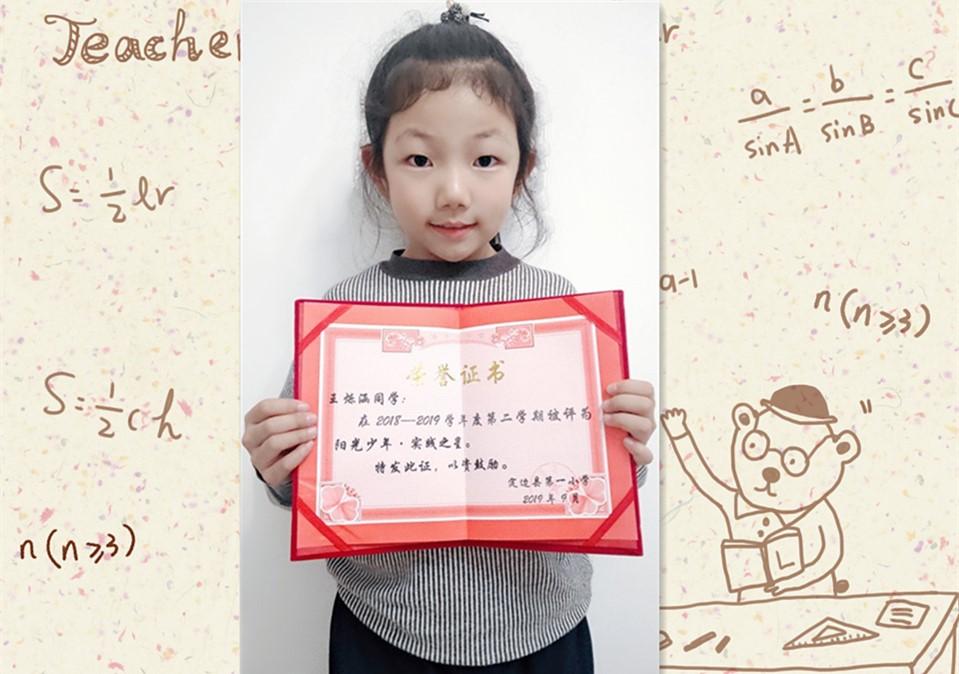 Teacher
er
a/sinA = b/sinB = c/sinC
S=½lr
a-1
n(n≥3)
S=½ch
n(n≥3)
荣誉证书
王烁涵同学：
在2018—2019学年度第二学期被评为
阳光少年·实践之星。
特发此证，以资鼓励。
定边县第一小学
2019年9月